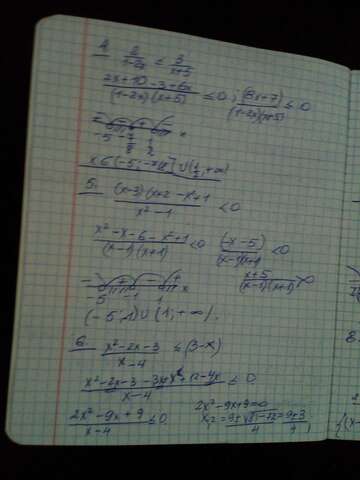 4. 2/(1-2x) ≤ 3/(x+5)
(2x+10-3+6x)/((1-2x)(x+5)) ≤ 0; (8x+7)/((1-2x)(x+5)) ≤ 0
-5 -7/8 1/2 x
x ∈ (-5; -7/8] ∪ (1/2; +∞)
5. ((x-3)(x+2)-x²+1)/(x²-1) < 0
(x²-x-6-x²+1)/((x-1)(x+1)) < 0 (-x-5)/((x-1)(x+1)) < 0
(x+5)/((x-1)(x+1)) > 0
-5 -1 1 x
(-5; -1) ∪ (1; +∞).
6. (x²-2x-3)/(x-4) ≤ (3-x)
(x²-2x-3-3x+x²+12-4x)/(x-4) ≤ 0
(2x²-9x+9)/(x-4) ≤ 0 2x²-9x+9=0
x₁,₂ = (9±√(81-72))/4 = (9±3)/4